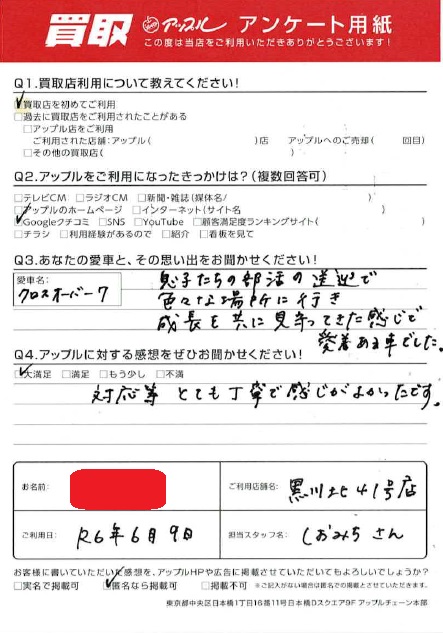 買取 アップル アンケート用紙
この度は当店をご利用いただきありがとうございます!
Q1.買取店利用について教えてください!
☑買取店を初めてご利用
□過去に買取店をご利用されたことがある
□アップル店をご利用
ご利用された店舗:アップル( )店 アップルへのご売却( 回目)
□その他の買取店( )
Q2.アップルをご利用になったきっかけは?(複数回答可)
□テレビCM □ラジオCM □新聞・雑誌(媒体名/ )
□アップルのホームページ □インターネット(サイト名 )
☑Googleクチコミ □SNS □YouTube □顧客満足度ランキングサイト( )
□チラシ □利用経験があるので □紹介 □看板を見て
Q3.あなたの愛車と、その思い出をお聞かせください!
愛車名:
クロスオーバー7
息子たちの部活の送迎で
色々な場所に行き
成長を共に見守ってきた感じで
愛着ある車でした。
Q4.アップルに対する感想をぜひお聞かせください!
☑大満足 □満足 □もう少し □不満
対応等 とても丁寧で感じがよかったです。
お名前:
ご利用店舗名: 黒川北41号店
ご利用日: R6年6月9日
担当スタッフ名: しおみち さん
お客様に書いていただいた感想を、アップルHPや広告に掲載させていただいてもよろしいでしょうか?
□実名で掲載可 ☑匿名なら掲載可 □掲載不可 ※ご記入がない場合は匿名での掲載とさせていただきます。
東京都中央区日本橋1丁目16番11号日本橋Dスクエア9F アップルチェーン本部